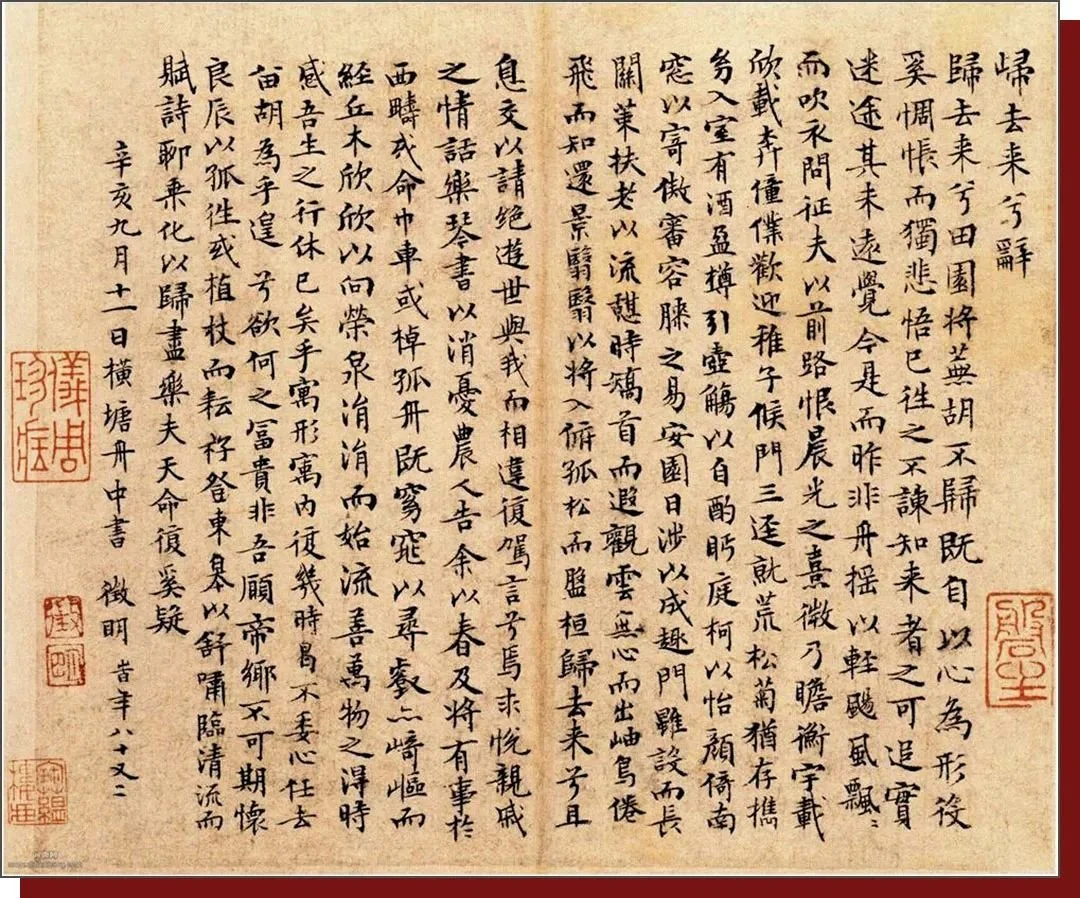 歸去来兮辭
歸去来兮田園将蕪胡不歸既自以心為形役
奚惆悵而獨悲悟已徃之不諫知来者之可追實
迷途其未遠覺今是而昨非舟揺以輕颺風飄〻
而吹衣問征夫以前路恨晨光之熹微乃瞻衡宇載
欣載奔僮僕歡迎稚子候門三逕就荒松菊猶存携
幼入室有酒盈樽引壺觴以自酌眄庭柯以怡顏倚南
窓以寄傲審容膝之易安園日涉以成趣門雖設而長
關策扶老以流憩時矯首而遐觀雲無心而出岫鳥倦
飛而知還景翳翳以将入俯孤松而盤桓歸去来兮且
息交以請絶遊世與我而相違復駕言兮焉求悅親戚
之情話樂琴書以消憂農人告余以春及将有事於
西疇或命巾車或棹孤舟既窈窕以尋壑亦崎嶇而
經丘木欣欣以向榮泉涓涓而始流善萬物之得時
感吾生之行休已矣乎寓形寓内復幾時曷不委心任去
畱胡為乎遑兮欲何之冨貴非吾願帝鄉不可期懷
良辰以孤徃或植杖而耘耔登東皋以舒嘯臨清流而
賦詩聊乗化以歸盡樂夫天命復奚疑
辛亥九月十一日横塘舟中書 徵明 旹年八十又二
儀周珍藏
徵
明